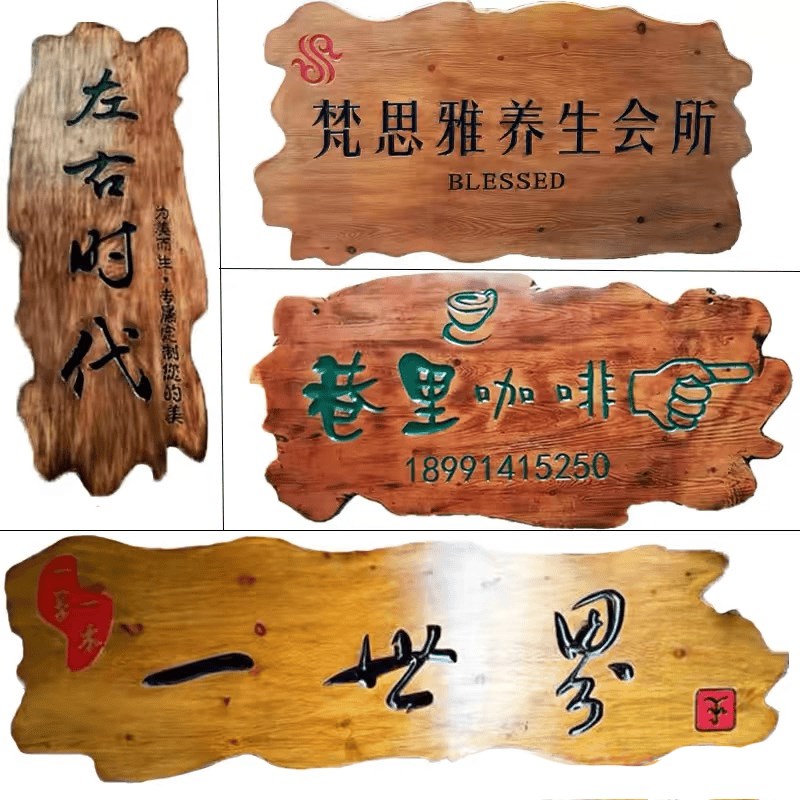 左右时代
为美而生·专属定制您的美
梵思雅养生会所
BLESSED
巷里咖啡
18991415250
一世界